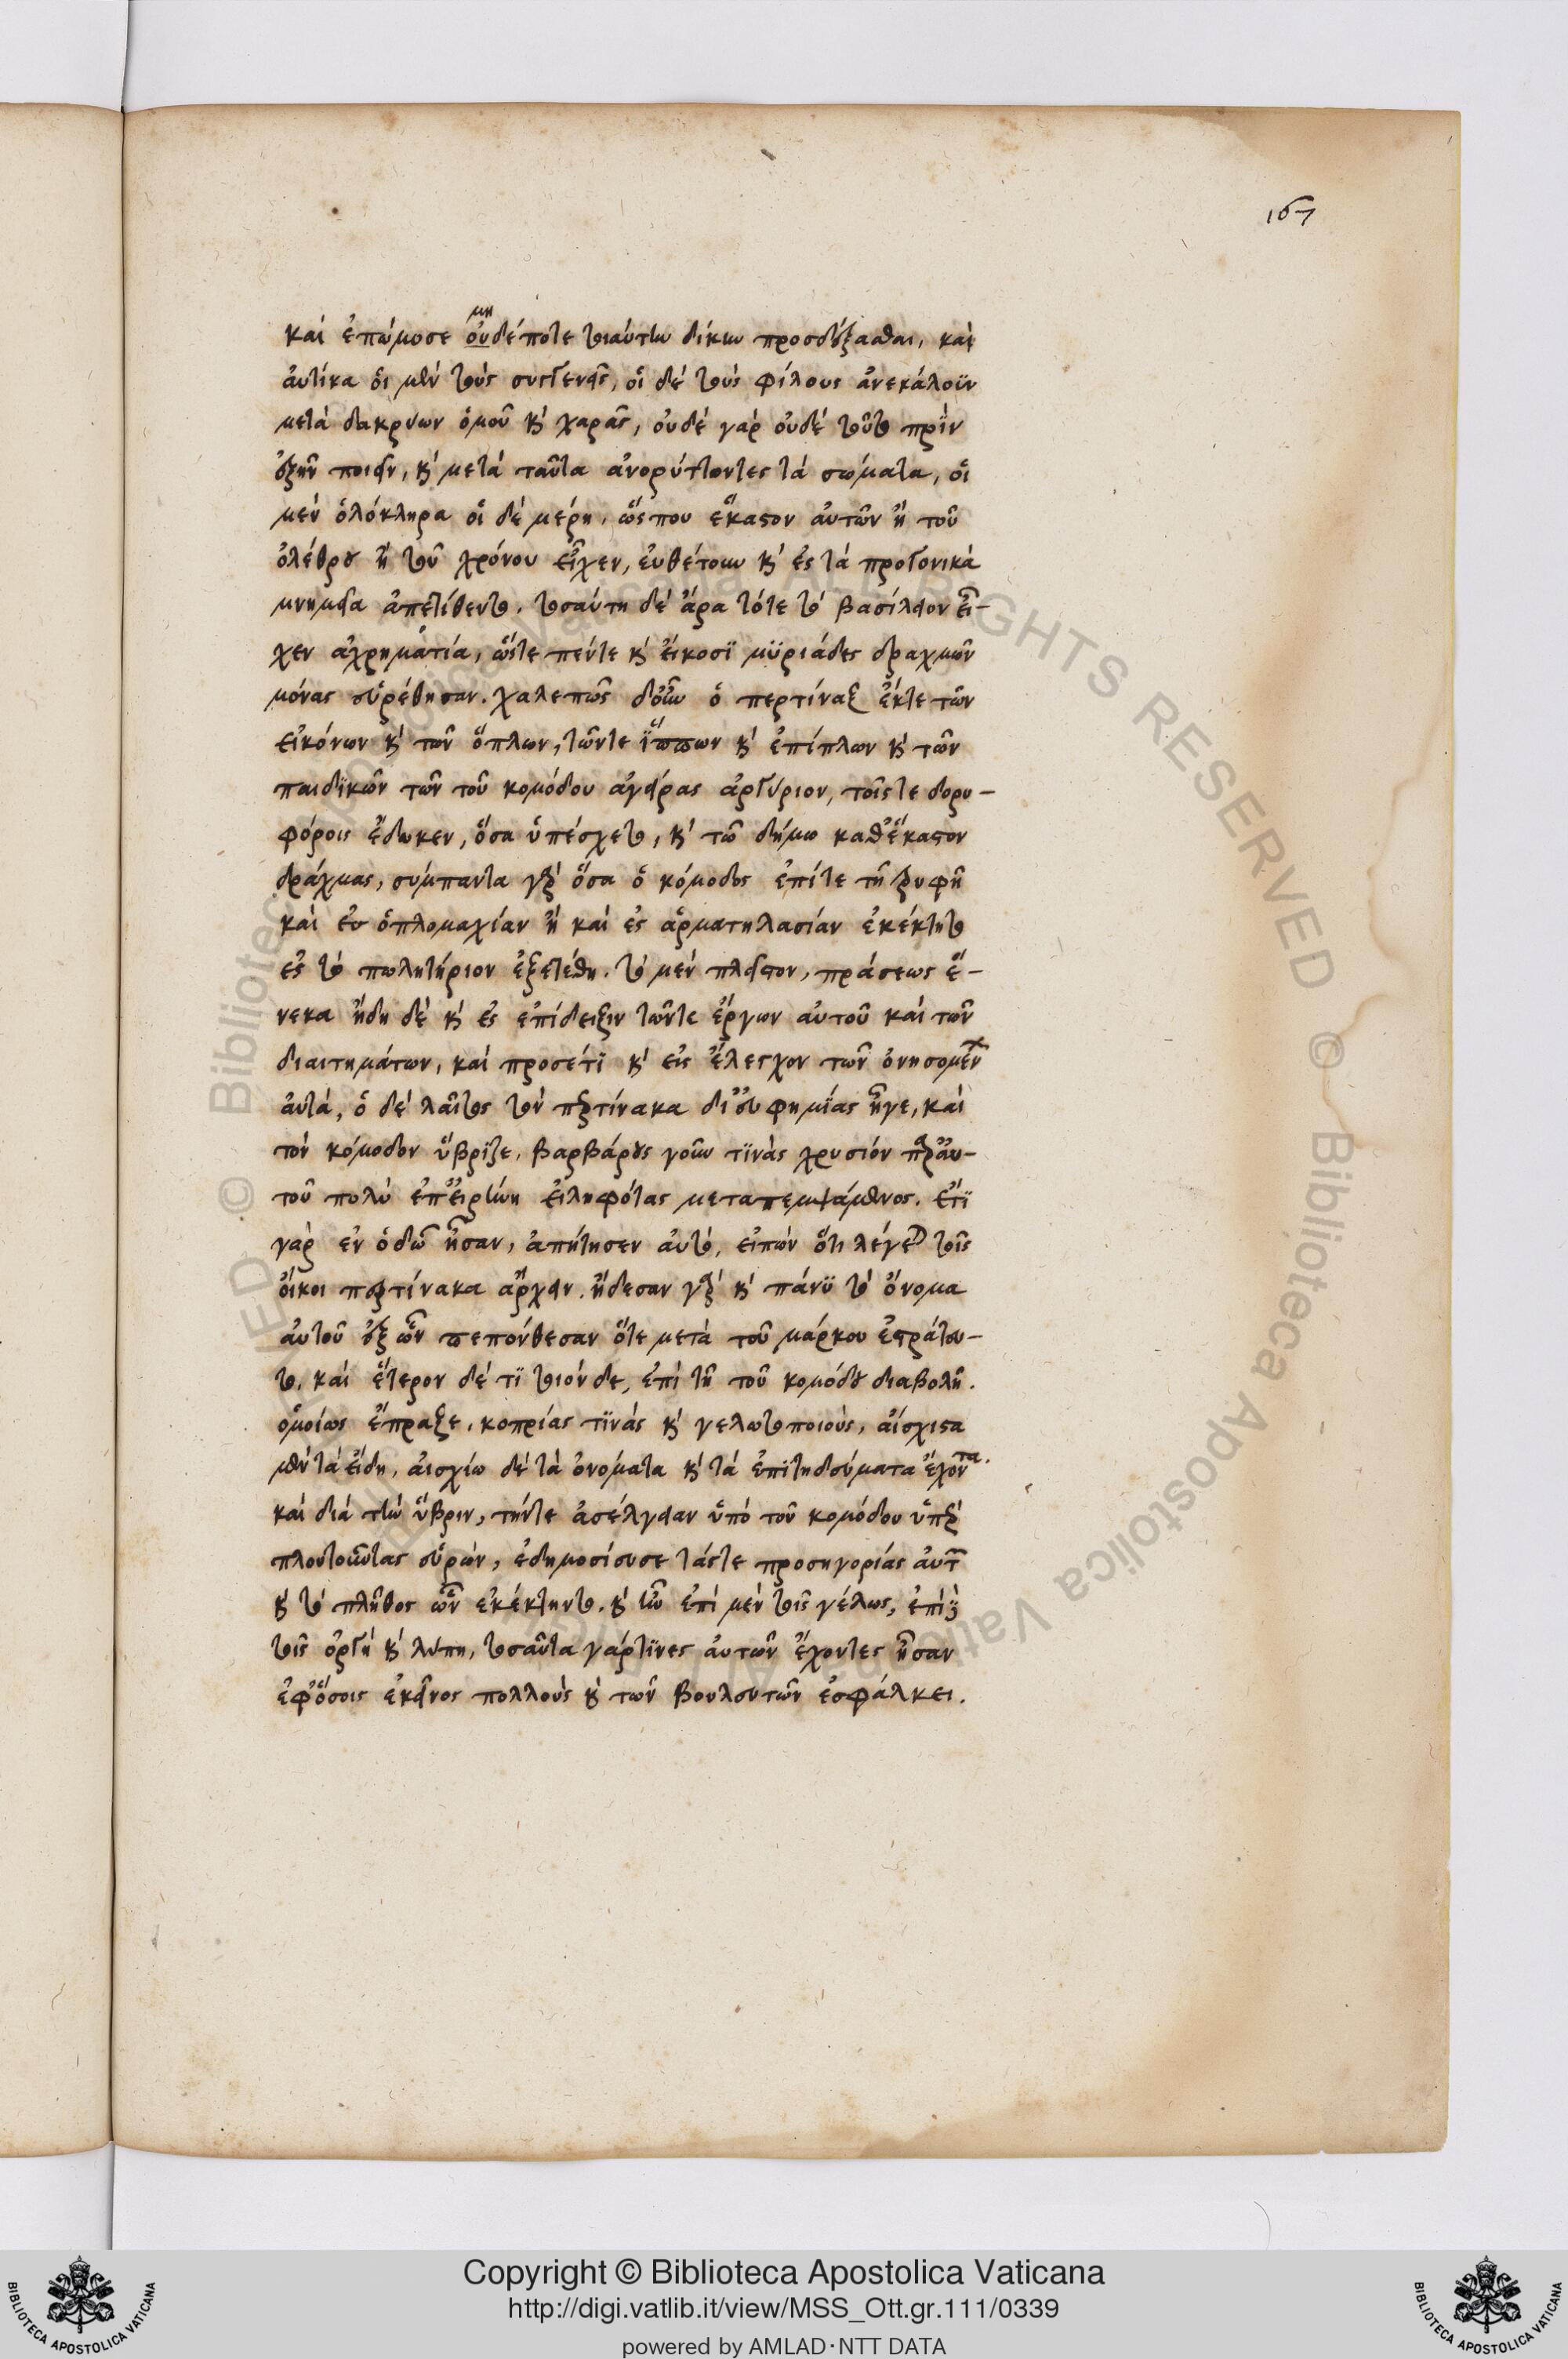 167
μη
καὶ ἐπώμοσε οὐδέποτε τοιαύτην δίκην προσδέξασθαι, καὶ
ἀυτίκα ὁι μὲν τοὺς συγγενεῖς, οἱ δὲ τοὺς φίλους ἀνεκάλουν
μετὰ δακρύων ὁμοῦ κ̀ χαρᾶς, οὐδὲ γὰρ οὐδὲ τοῦτο πρὶν
ἐξῆν ποιεῖν, κ̀ μετὰ ταῦτα ἀνορύττοντες τὰ σώματα, οἱ
μὲν ὁλόκληρα οἱ δὲ μέρη, ὥς που ἕκαστον ἀυτῶν ἢ τοῦ
ὀλέθρου ἢ τοῦ χρόνου εἶχεν, ἐυθέτουν κ̀ ἐς τὰ προγονικὰ
μνημεῖα ἀπετίθεντο. τοσαύτη δὲ ἄρα τότε τὸ βασίλειον εἶ-
χεν ἀχρηματία, ὥστε πέντε κ̀ ἔικοσϊ μϋριάδες δραχμῶν
μόνας εὑρέθησαν. χαλεπῶς δ' οὖν ὁ περτίναξ ἔκ τε τῶν
εἰκόνων κ̀ τῶν ὅπλων, τῶν τε ἵππων κ̀ ἐπίπλων κ̀ τῶν
παιδϊκῶν τῶν τοῦ κομόδου ἀγείρας ἀργύριον, τοῖς τε δορυ-
φόροις ἔδωκεν, ὅσα ὑπέσχετο, κ̀ τῶ δήμω καθ' ἕκαστον
δράχμας, σύμπαντα γὰρ ὅσα ὁ κόμοδος ἐπί τε τῆ τρυφῆ
καὶ ἐν ὁπλομαχίαν ἢ καὶ ἐς ἁρματηλασίαν ἐκέκτητο
ἐς τὸ πωλητήριον ἐξετέθη. τὸ μὲν πλεῖστον, πράσεως ἕ-
νεκα ἤδη δὲ κ̀ ἐς ἐπίδειξιν τῶν τε ἔργων ἀυτοῦ καὶ τῶν
διαιτημάτων, καὶ προσέτϊ κ̀ εἰς ἔλεγχον τῶν ὀνησομένων
ἀυτὰ, ὁ δὲ λαῖτος τὸν περτίνακα δι' ἐυφημΐας ἦγε, καὶ
τὸν κόμοδον ὕβριζε, βαρβάρους γοῦν τϊνὰς χρυσίον παρ' ἀυ-
τοῦ πολὺ ἐπ' εἰρήνη εἰληφότας μεταπεμψάμενος. ἔτϊ
γὰρ ἐν ὁδῶ ἦσαν, ἀπήτησεν ἀυτό, εἰπὼν ὅτι λέγετε τοῖς
ὄικοι περτίνακα ἄρχειν. ἤδεσαν γὰρ κ̀ πάνϋ τὸ ὄνομα
ἀυτοῦ ἐξ ὧν πεπόνθεσαν ὅτε μετὰ τοῦ μάρκου ἐστράτευ-
το. καὶ ἕτερον δέ τϊ τοιόνδε, ἐπὶ τῆ τοῦ κομόδου διαβολῆ.
ὁμοίως ἔπραξε. κοπρίας τϊνὰς κ̀ γελωτοποιοὺς, ἄισχιστα
μὲν τὰ ἔιδη, ἀισχίω δὲ τὰ ὀνόματα κ̀ τὰ ἐπϊτηδεύματα ἔχοντα.
καὶ διὰ τὴν ὕβριν, τήν τε ἀσέλγειαν ὑπὸ τοῦ κομόδου ὑπὲρ
πλουτοῦντας εὑρών, ἐδημοσίευσε τάς τε προσηγορίας ἀυτῶν
κ̀ τὸ πλῆθος ὧν ἐκέκτηντο. κ̀ ἦν ἐπὶ μὲν τοῖς γέλως, ἐπὶ δὲ
τοῖς ὀργὴ κ̀ λύπη, τοσαῦτα γάρ τϊνες ἀυτῶν ἔχοντες ἦσαν
ἐφ' ὅσοις ἐκεῖνος πολλοὺς κ̀ τῶν βουλευτῶν ἐσφάλκει.
© Biblioteca Apostolica Vaticana
ALL RIGHTS RESERVED
BIBLIOTECA APOSTOLICA VATICANA
Copyright © Biblioteca Apostolica Vaticana
http://digi.vatlib.it/view/MSS_Ott.gr.111/0339
powered by AMLAD·NTT DATA
BIBLIOTECA APOSTOLICA VATICANA